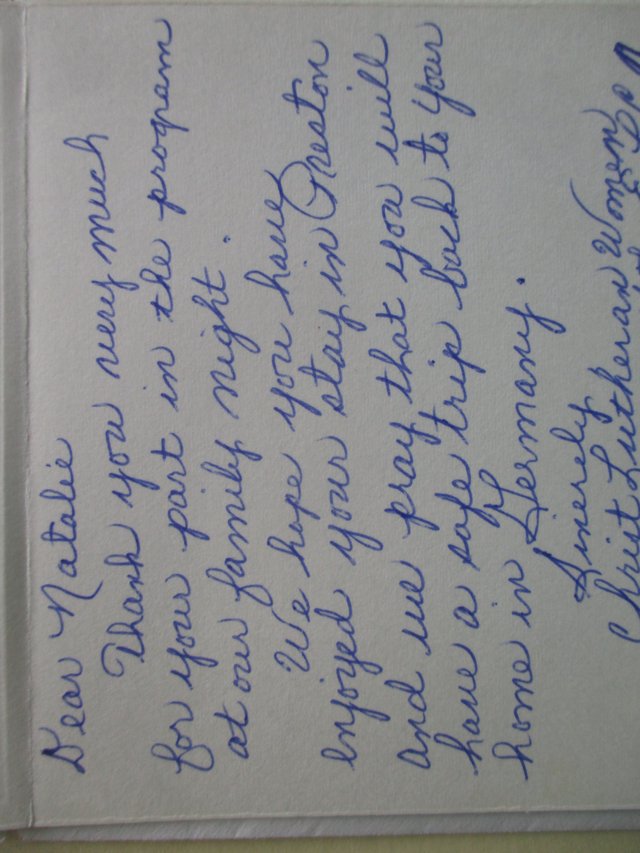 Dear Natalie
Thank you very much
for your part in the program
at our family night.
We hope you have
enjoyed your stay in Preston
and we pray that you will
have a safe trip back to your
home in Germany.
Sinerely
Christ Lutheran Women